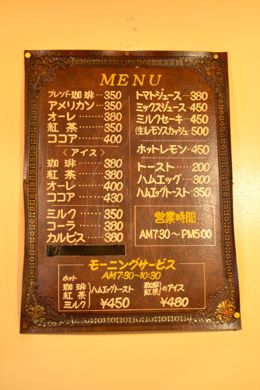 MENU
ブレンド珈琲……350
アメリカン……350
オーレ……380
紅茶……350
ココア……400
〈アイス〉
珈琲……380
紅茶……380
オーレ……400
ココア……430
ミルク……350
コーラ……380
カルピス……380
トマトジュース……380
ミックスジュース…450
ミルクセーキ……450
(生)レモンスカッシュ…500
ホットレモン……450
トースト……200
ハムエッグ……300
ハムエッグトースト…350
営業時間
AM7:30〜PM5:00
モーニングサービス
AM7:30〜10:30
ホット
珈琲
紅茶
ミルク
ハムエッグトースト
¥450
珈琲
紅茶
のアイス
¥480